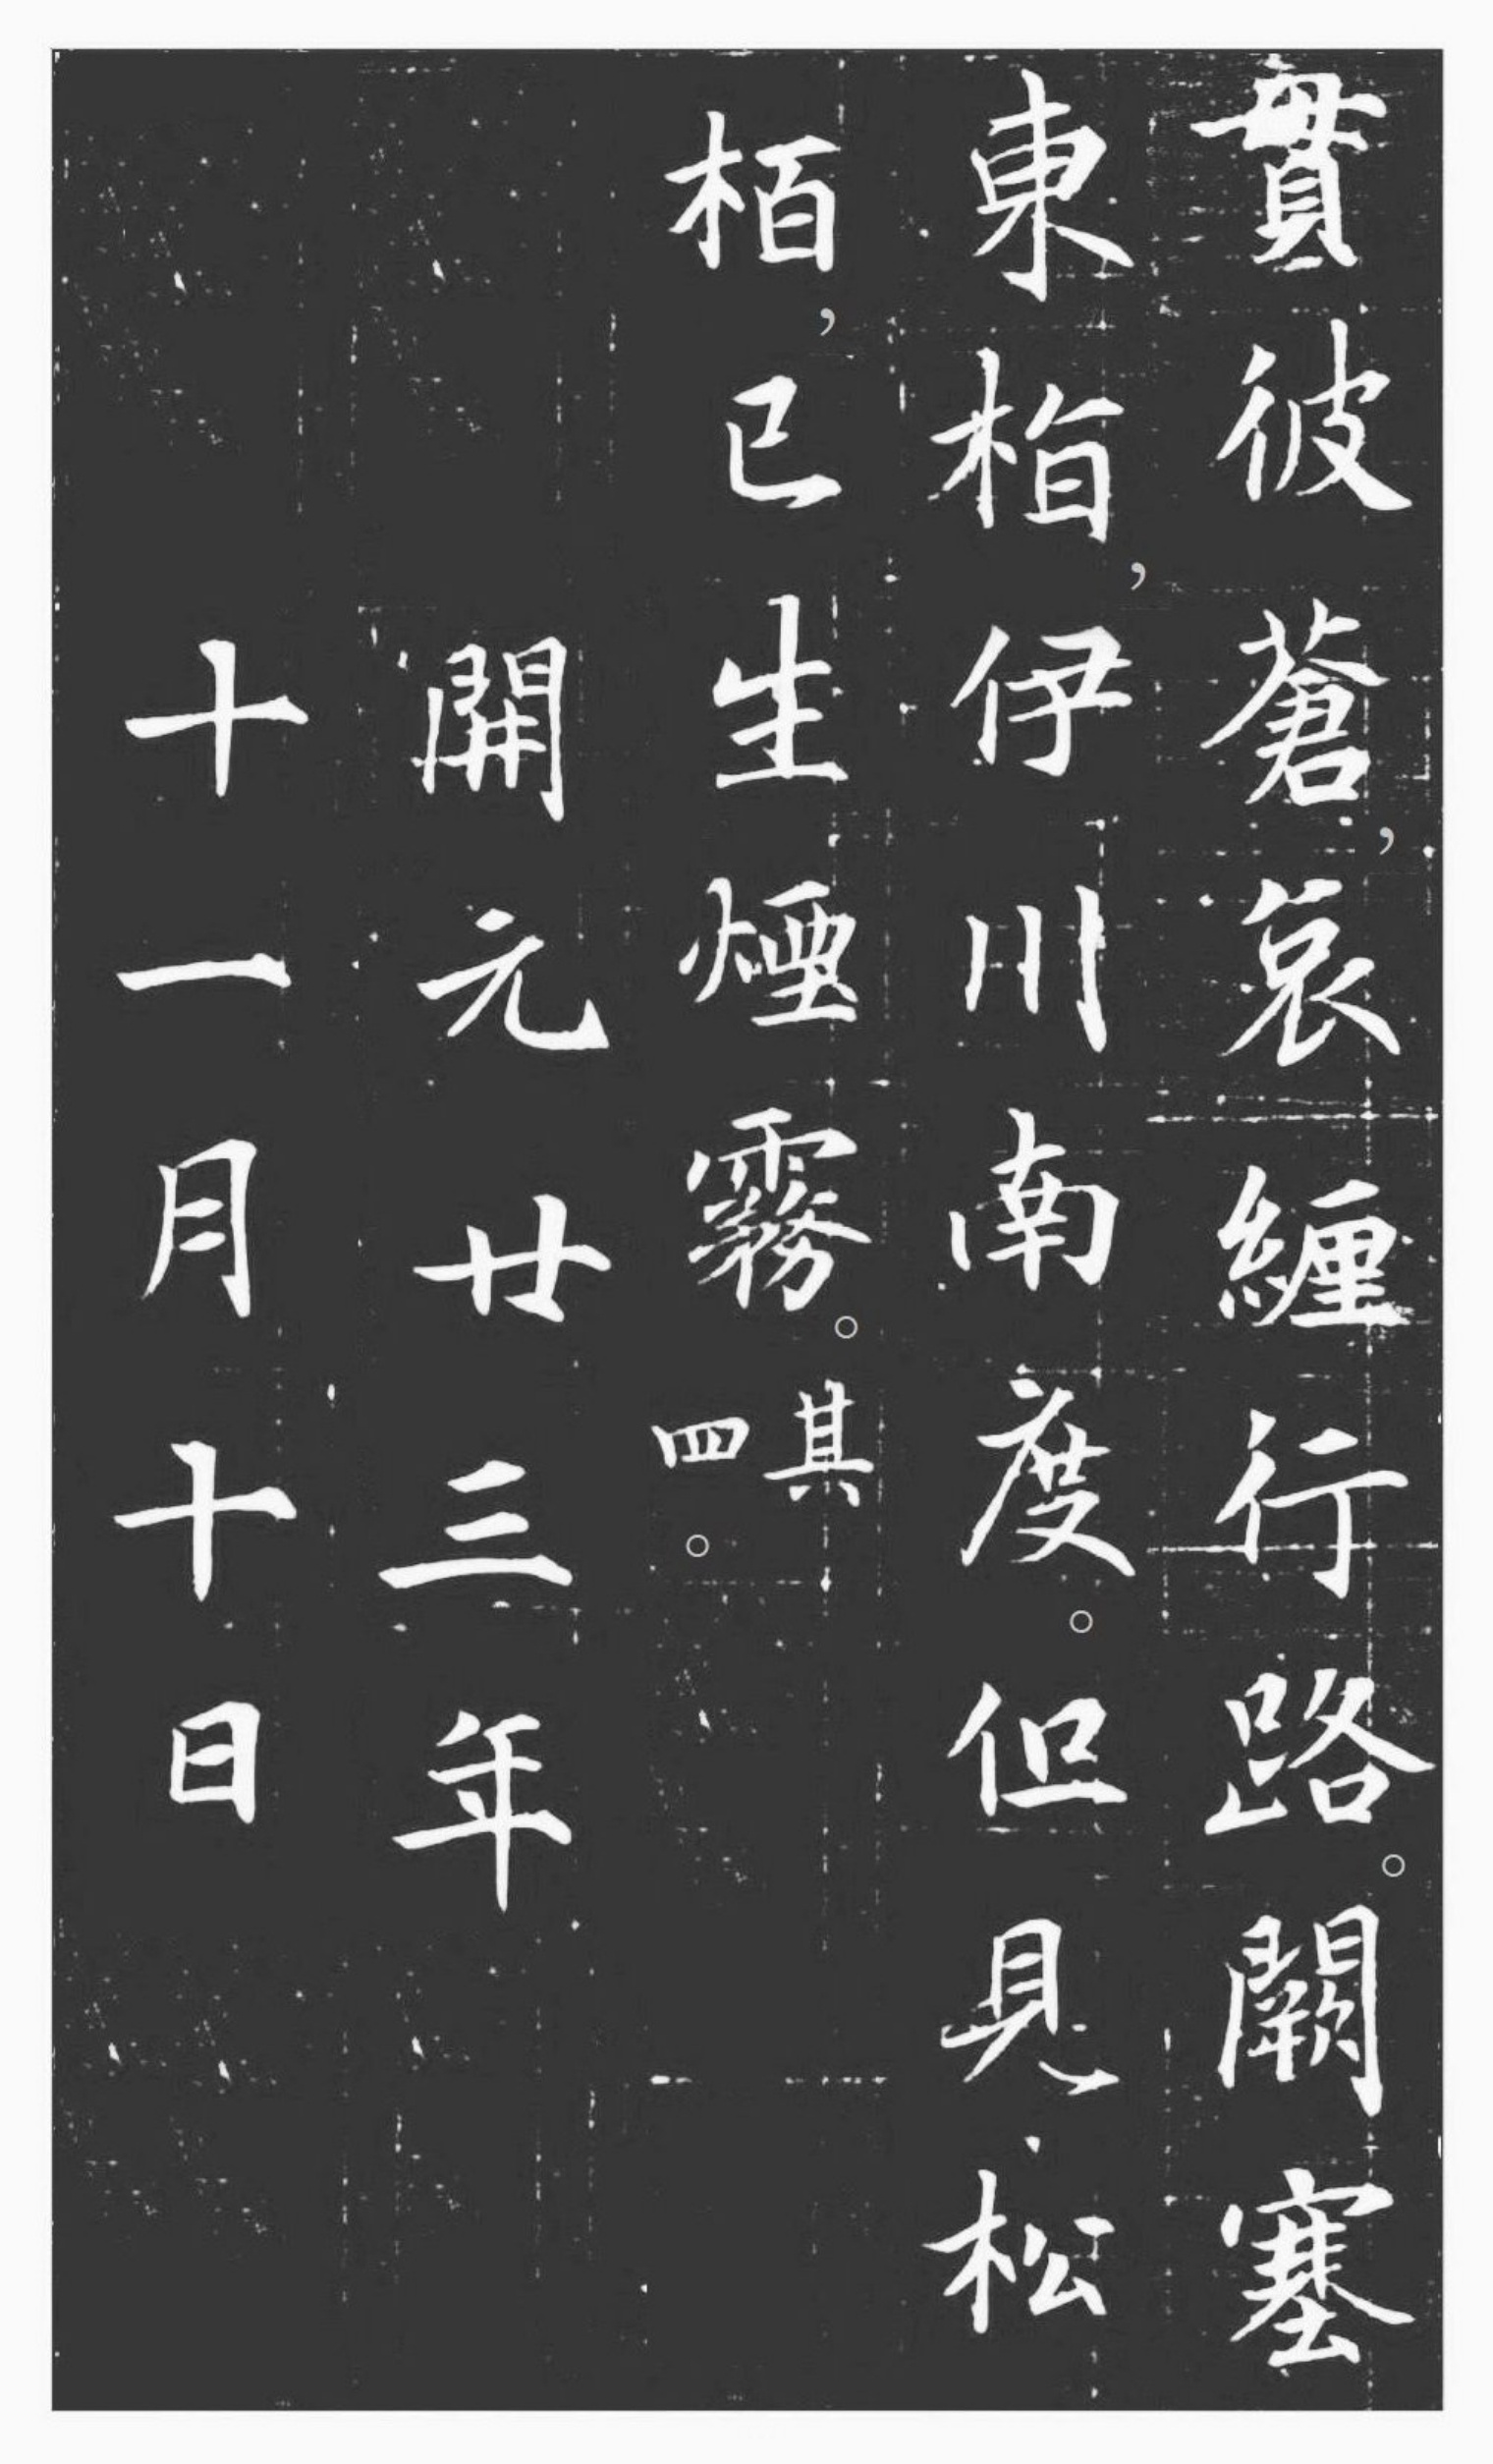 貫彼蒼，哀纏行路。闕塞
東指，伊川南度。但見松
栢，已生煙霧。其四。
開元廿三年
十一月十日